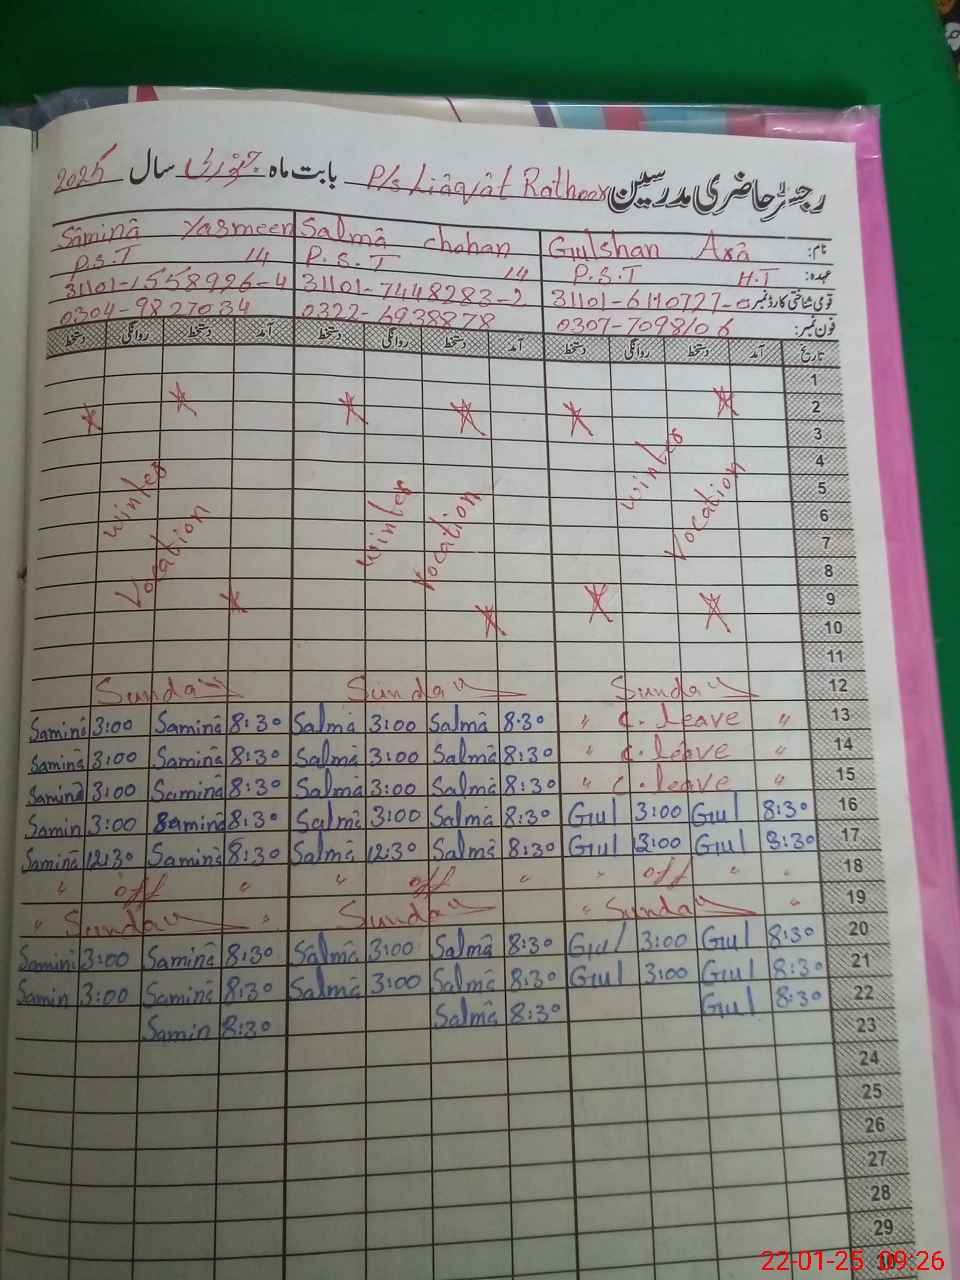 رجسٹر حاضری مدرسین P/s Liaqat Rathoor بابت ماہ جنوری سال 2025
نام: Gulshan Ara Salma chohan Samina Yasmeen
عہدہ: P.S.T H.T P.S.T 14 P.S.T 14
قومی شناختی کارڈ نمبر 31101-7448283-2 31101-1558926-4
فون نمبر: 0307-7098106 0322-6938878 0304-9827034
تاریخ آمد دستخط روانگی دستخط آمد دستخط روانگی دستخط آمد دستخط روانگی دستخط
1
2
3
4
5
6
7
8
9
10
11
Winter Vocation Winter Vocation Winter Vocation
Sunday Sunday Sunday 12
Samina 3:00 Samina 8:30 Salma 3:00 Salma 8:30 " C. leave " 13
Samina 3:00 Samina 8:30 Salma 3:00 Salma 8:30 " C. leave " 14
Samina 3:00 Samina 8:30 Salma 3:00 Salma 8:30 " C. leave " 15
Samin 3:00 Samina 8:30 Salma 3:00 Salma 8:30 Gul 3:00 Gul 8:30 16
Samina 12:30 Samina 8:30 Salma 12:30 Salma 8:30 Gul 3:00 Gul 8:30 17
" off " " off " " off " " 18
" Sunday " Sunday " Sunday " 19
Samini 3:00 Samina 8:30 Salma 3:00 Salma 8:30 Gul 3:00 Gul 8:30 20
Samin 3:00 Samina 8:30 Salma 3:00 Salma 8:30 Gul 3:00 Gul 8:30 21
Samin 8:30 Salma 8:30 Gul 8:30 22
23
24
25
26
27
28
29
22-01-25 09:26